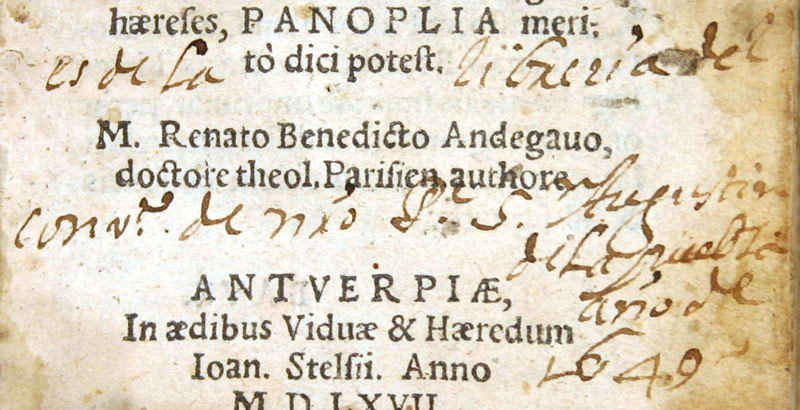 hæreſes, PANOPLIA meri-
es de la
tò dici poteſt.
libreria del
M. Renato Benedicto Andegauo,
doctore theol. Pariſien. authore
conv.to de nr̃o P.e S. Augustin
de la puebla
año de
1649
ANTVERPIÆ,
In ædibus Viduæ & Hæredum
Ioan. Stelſii. Anno
M. D. LXVII.